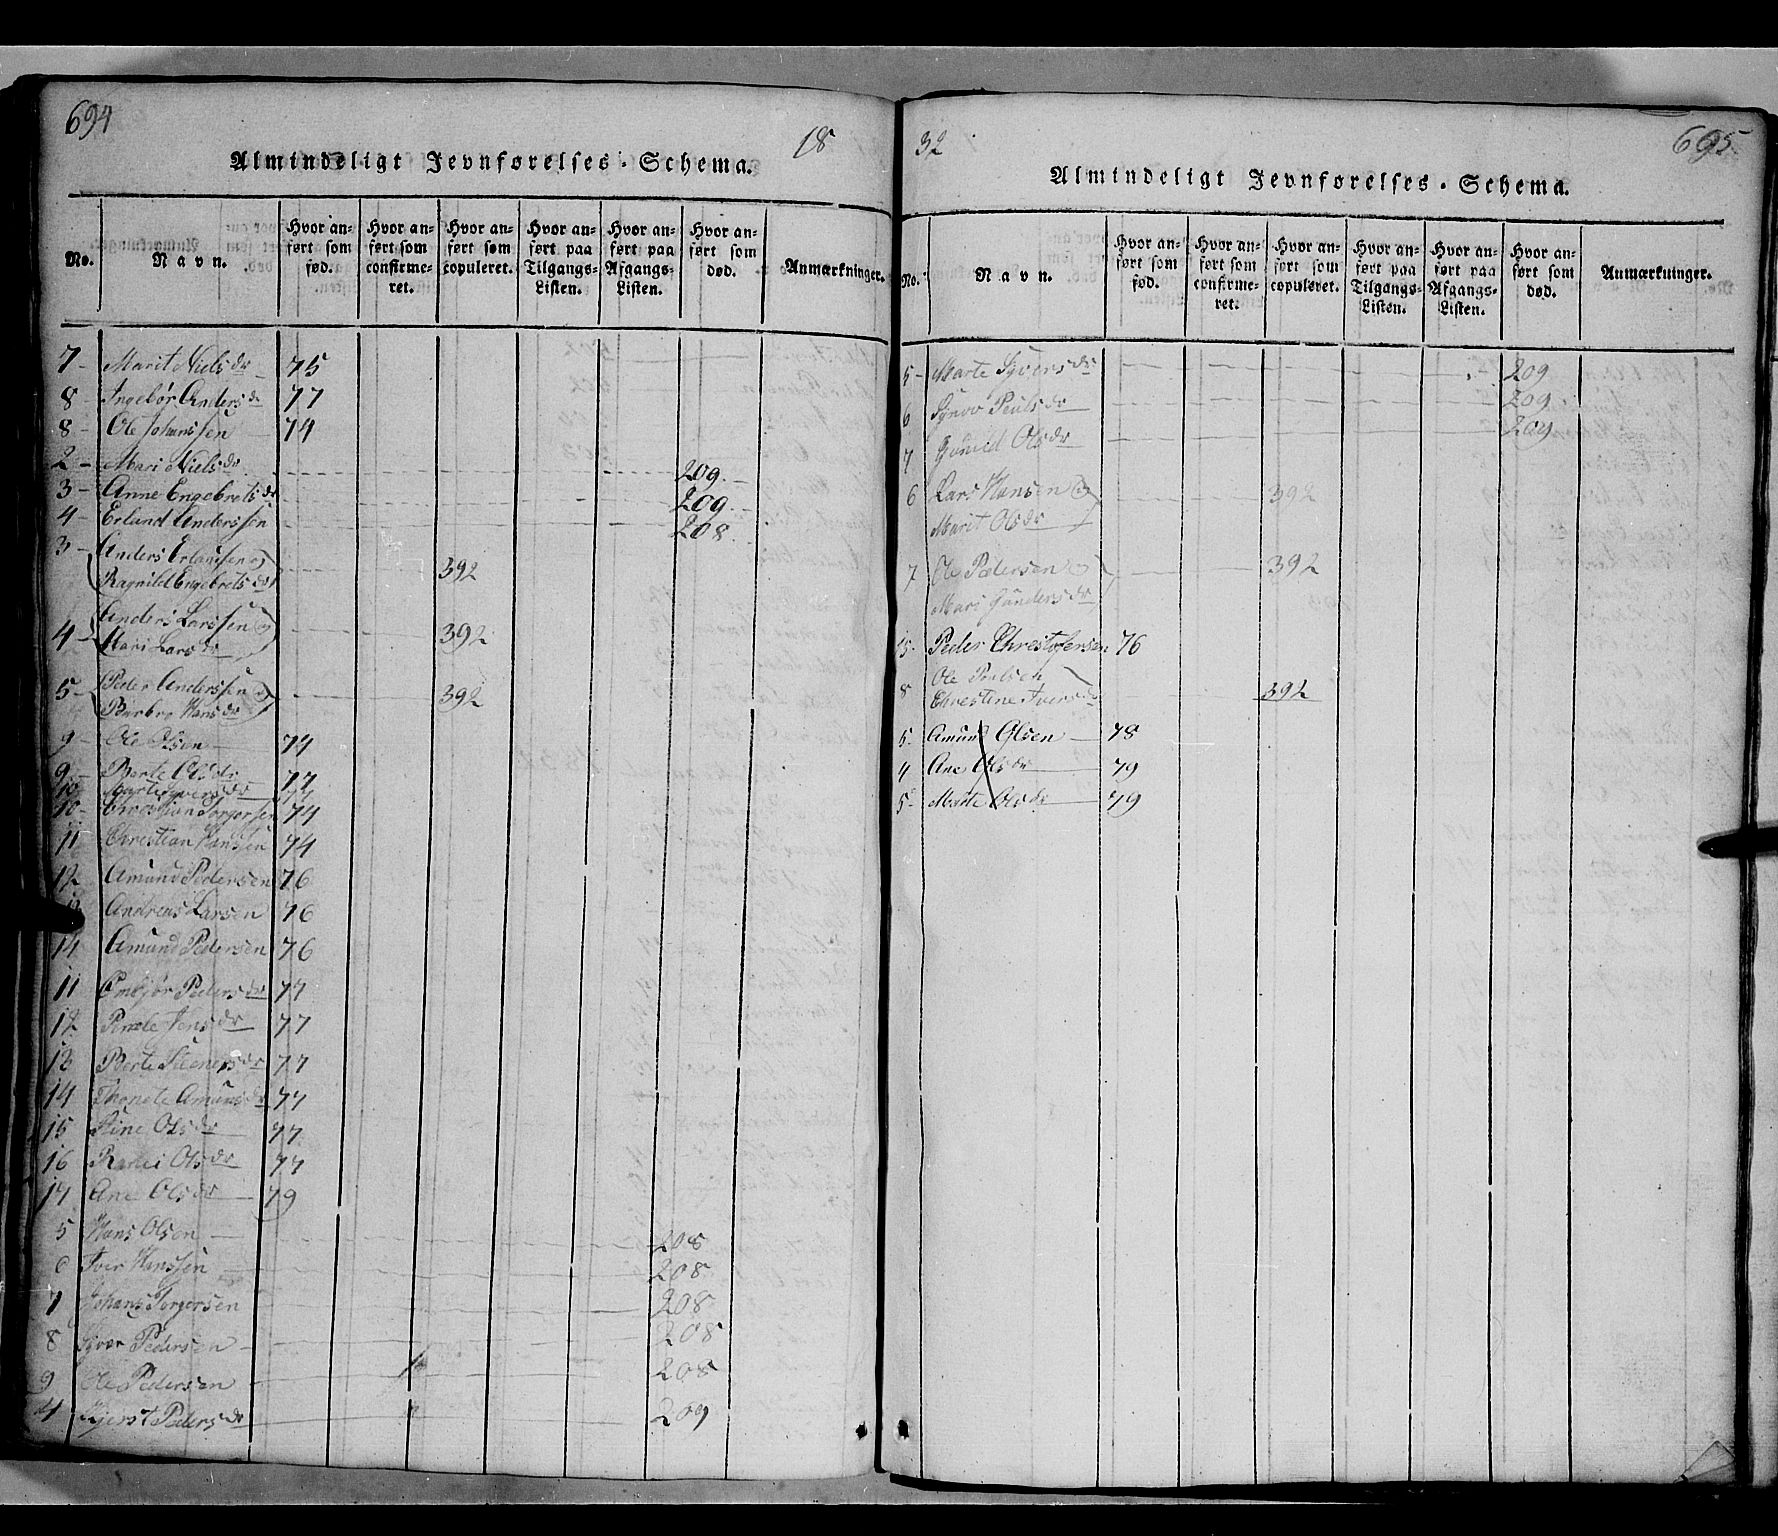 694
18
Almindeligt Jevnførelses-Schema.
No. Navn. Hvor anført som fød. Hvor anført som confirmeret. Hvor anført som copuleret. Hvor anført paa Tilgangs-Listen. Hvor anført paa Afgangs-Listen. Hvor anført som død. Anmærkninger.
7 - Marit Nielsdr 75
8 - Ingebør Andersdr 77
8 - Ole Johanssen 74
2 - Mari Nielsdr 209
3 - Anne Engebretsdr 209
4 - Erland Anderssen 208
3 - Anders Erlandsen og
Ragnild Engebretsdr 392
Anders Larssen og
4 - Mari Larsdr 392
5 - Peder Anderssen og
Barbro Hansdr 392
9 - Ole Olsen 74
9 - Berte Olsdr 77
10 Marte Iversdr 77
10 - Christian Torgersen 74
11 Christian Hanssen 74
12 Amund Pedersen 76
Andreas Larsen 76
14 Amund Pedersen 76
11 Embjør Pedersdr 77
12 Jensdr 77
13 Berte Steenersdr 77
14 Thonete Amundsdr 77
15 Stine Olsdr 77
16 Olsdr 77
17 Ane Olsdr 79
5 Hans Olsen 208
6 Iver Hanssen 208
7 Johans Torgersen 208
8 Syver Pedersen 208
9 Ole Pedersen 208
4 Kjerst Pedersdr 209
32
695
Almindeligt Jevnførelses-Schema.
No. Navn. Hvor anført som fød. Hvor anført som confirmeret. Hvor anført som copuleret. Hvor anført paa Tilgangs-Listen. Hvor anført paa Afgangs-Listen. Hvor anført som død. Anmærkninger.
5 - Marte Syversdr 209
6 Synov Paulsdr 209
7 Gunild Olsdr 209
6 Lars Hansen og 392
Marit Olsdr
7 Ole Pedersen og 392
Mari Gundersdr
15 - Peder Christofersen 76
Ole Poulsen
8 Christine Iversdr 392
5 - Amund Olsen 78
4 Ane Olsdr 79
5 - Marte Olsdr 79